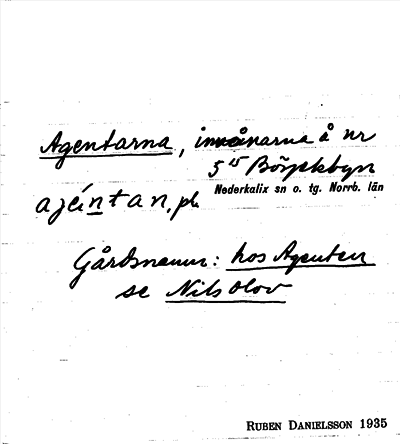 Agentarna, invånarna å nr
5¹⁵ Börjelsbyn
Nederkalix sn o. tg. Norrb. län
ajéintan, pl.
Gårdsnamn: hos Agenten
se Nils Olov
RUBEN DANIELSSON 1935